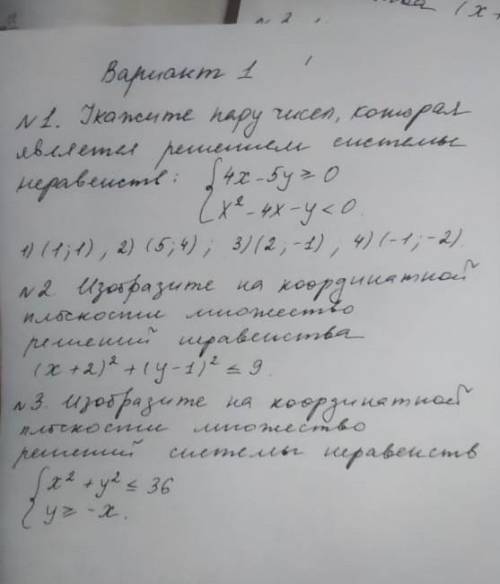 (x+
№2
Вариант 1
№1. Укажите пару чисел, которая
является решением системы
неравенств: { 4x-5y≥0
x²-4x-y<0.
1) (1;1), 2) (5;4); 3) (2;-1), 4) (-1;-2).
№2 Изобразите на координатной
плоскости множество
решений неравенства
(x+2)²+(y-1)²≤9.
№3. Изобразите на координатной
плоскости множество
решений системы неравенств
{ x²+y²≤36
y≥-x.